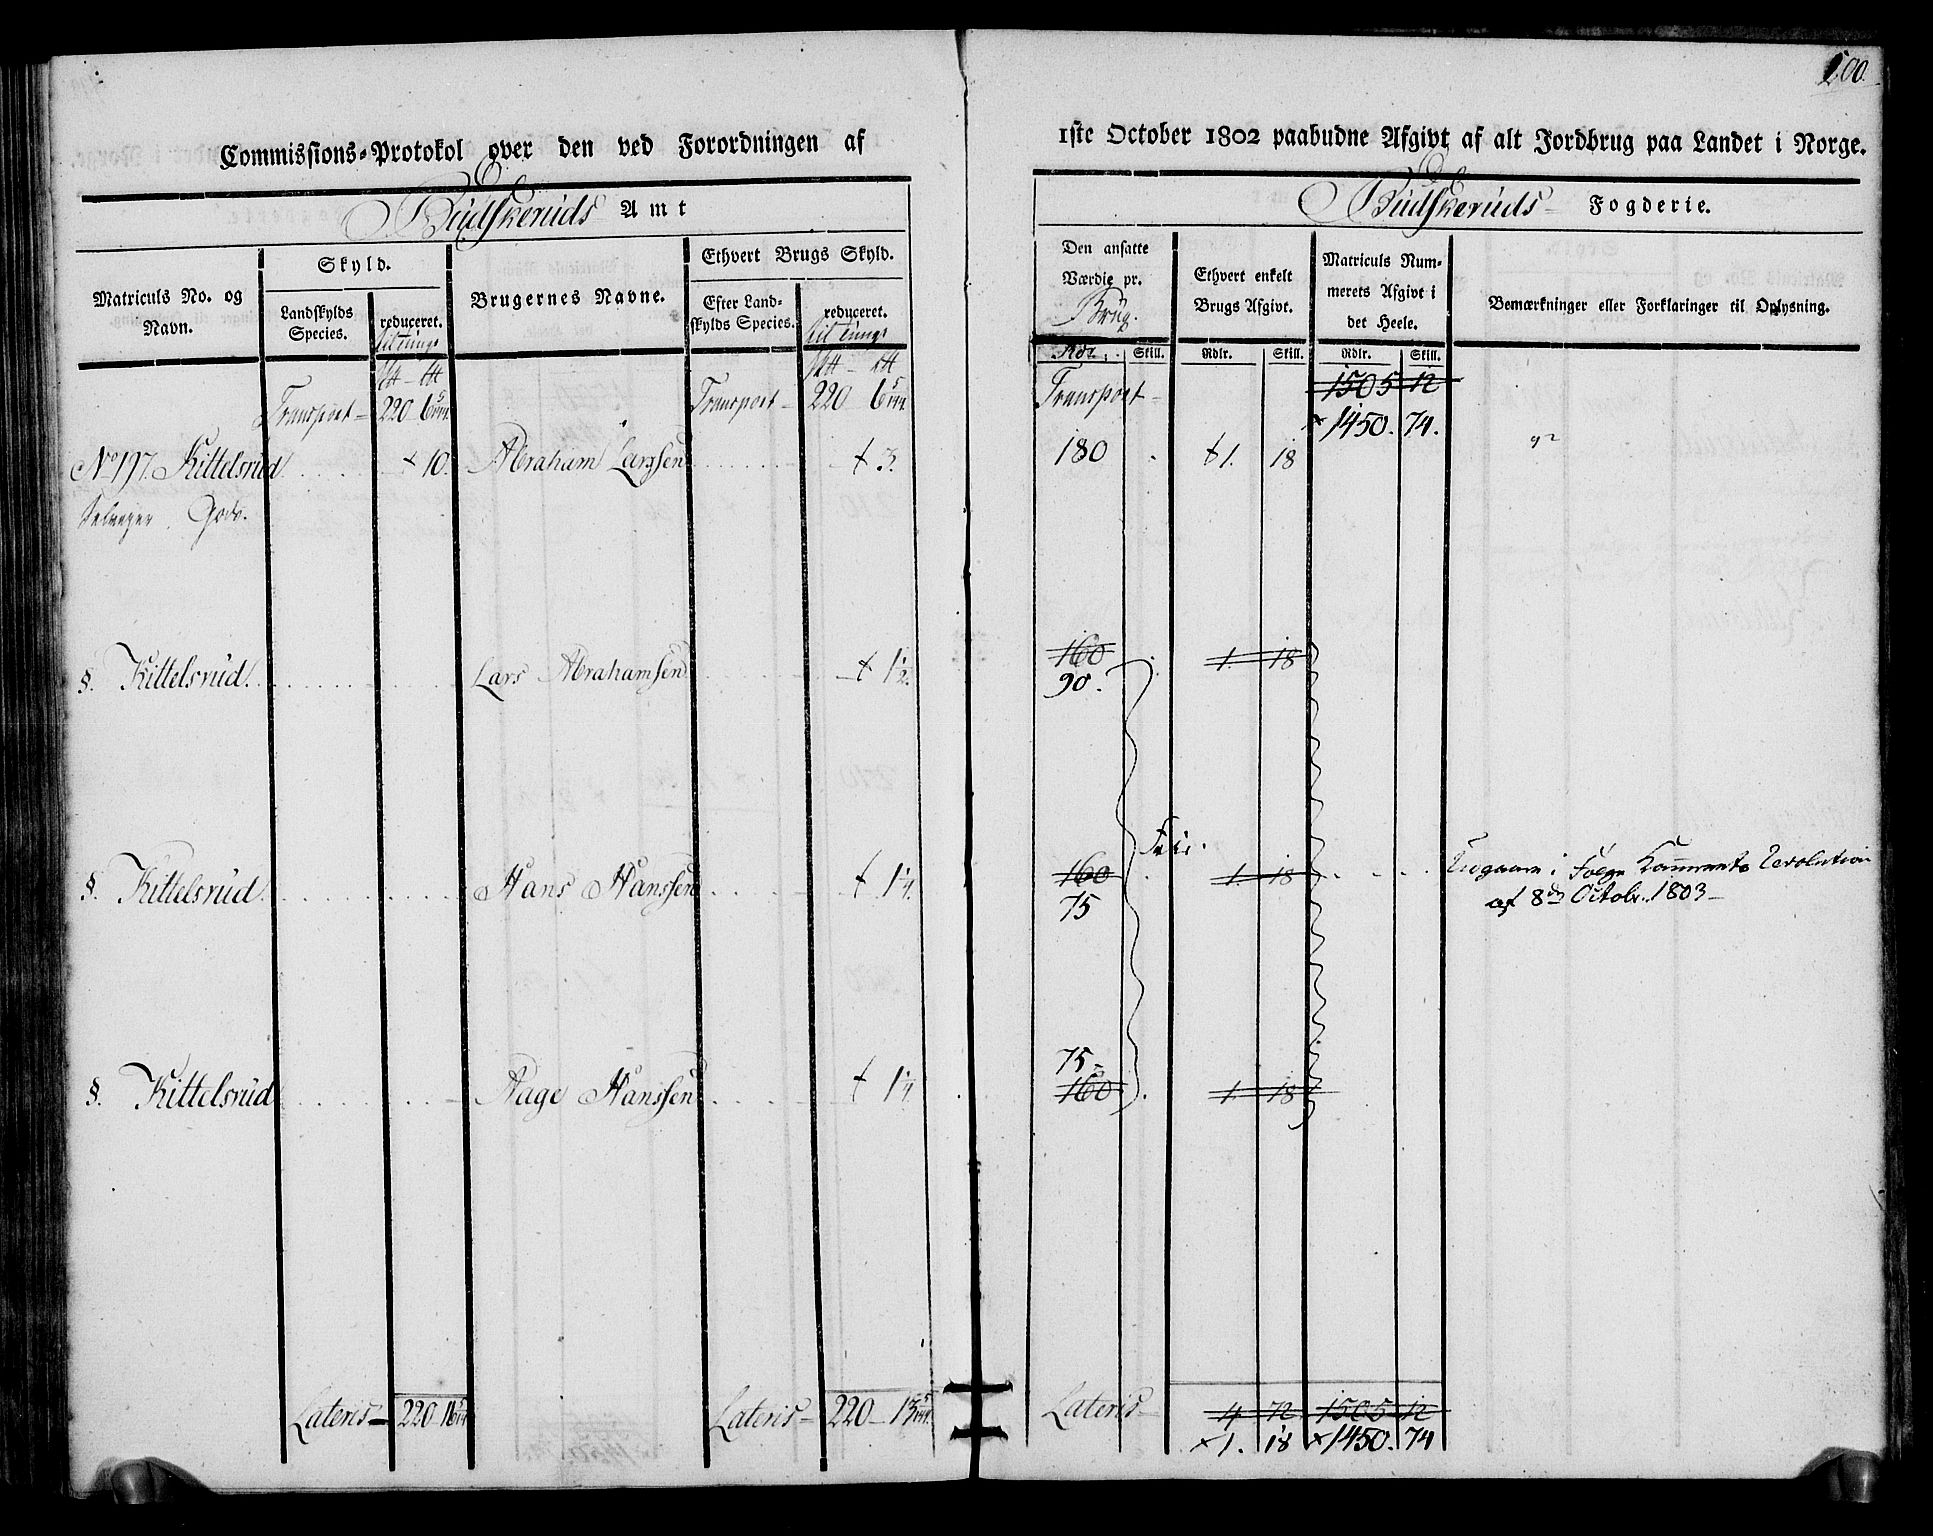 200.
Commissions-Protokol over den ved Forordningen af
1ste October 1802 paabudne Afgivt af alt Jordbrug paa Landet i Norge.
Budskeruds Amt
Budskeruds Fogderie.
Matriculs No. og Navn.
Skyld.
Landskylds Species.
reduceret.
til tunge
Brugernes Navne.
Ethvert Brugs Skyld.
Efter Landskylds Species.
reduceret.
til tunge
Den ansatte Værdie pr. Brug.
Rdr. Skill.
Ethvert enkelt Brugs Afgivt.
Rdlr. Skill.
Matriculs Nummerets Afgivt i det Heele.
Rdlr. Skill.
Bemærkninger eller Forklaringer til Oplysning.
Transport 220 6 Transport 220 6 Transport 1505 12
1450. 74.
No 197. Kittelsrud 10. Abraham Larssen 3. 180 1. 18
Selveyer Gods.
§. Kittelsrud. Lars Abrahamsen 1 1/2. 160 1. 18
90.
§. Kittelsrud. Hans Hanssen 1 1/4. 160 1. 18
75
af 8de Octobr. 1803
75
§. Kittelsrud Aage Hanssen 1 1/4. 160 1. 18
Lateris 220 16 Lateris 220 13 Lateris 4 72 1505 12
1. 18 1450. 74